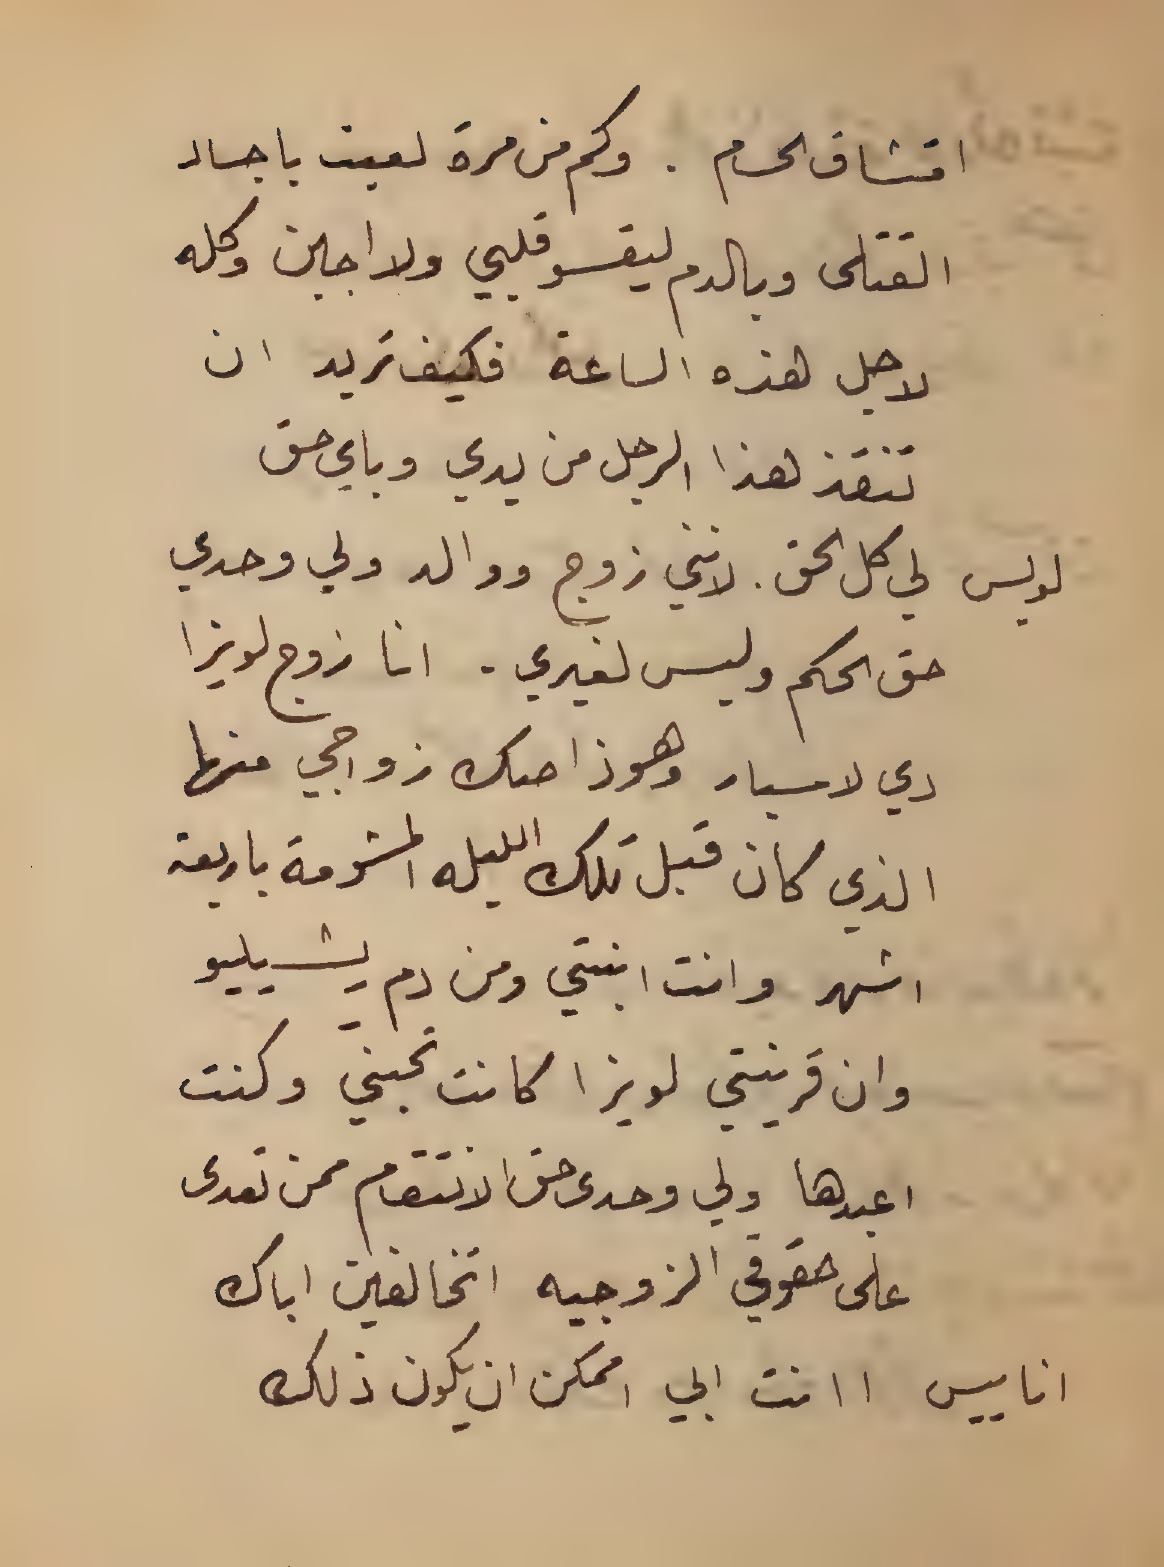 امتشاق الحسام . وكم من مرة لعبت باجساد
القتلى وبالدم ليقسو قلبي ولا اجبن وكله
لاجل هذه الساعة فكيف تريد ان
تنقذ هذا الرجل من يدي وباي حق
لويس لي كل الحق . لانني زوج ووالد ولي وحدي
حق الحكم وليس لغيري . انا زوج لويزا
دي لامبار وهوذا صك زواجي منها
الذي كان قبل تلك الليله المشومة باربعة
اشهر وانت ابنتي ومن دم يشيليو
وان قرينتي لويزا كانت تحبني وكنت
اعبدها ولي وحدى حق الانتقام ممن تعدى
على حقوقي الزوجيه اتخالفين اباك
اناييس اانت ابي اممكن ان يكون ذلك